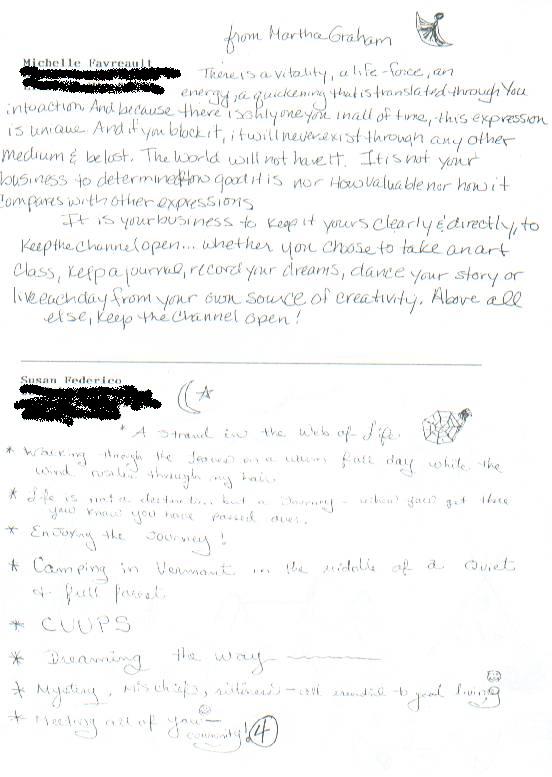 from Martha Graham
Michelle Favreault
There is a vitality, a life-force, an
energy, a quickening that is translated through You
into action And because there is only one you in all of time, this expression
is unique And if you block it, it will never exist through any other
medium & be lost. The World will not have it. It is not your
business to determine How good it is nor How valuable nor how it
compares with other expressions
It is your business to keep it yours clearly & directly, to
keep the channel open... whether you chose to take an art
class, keep a journal, record your dreams, dance your story or
live each day from your own source of creativity. Above all
else, keep the channel open!
Susan Federico
* A strand in the Web of Life.
* Walking through the leaves on a warm fall day while the
wind rustles through my hair
* Life is not a destination but a Journey - when you get there
you know you have passed over.
* Enjoying the Journey!
* Camping in Vermont in the middle of a quiet
& full forest
* CUUPS
* Dreaming the way
* Mystery, Mischief, silliness - all essential to good living
* Meeting all of you -
community!
4